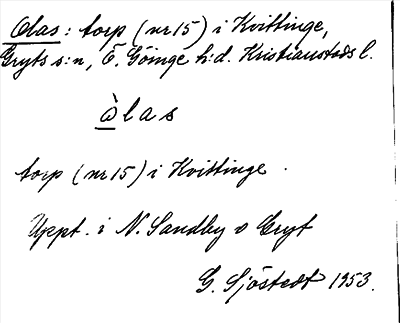 Olas: torp (nr 15) i Kvittinge,
Gryts s:n, Ö. Göinge h:d. Kristianstads l.
ὼlas
torp (nr 15) i Kvittinge.
Uppt. i N. Sandby o Gryt
G. Sjöstedt 1953.